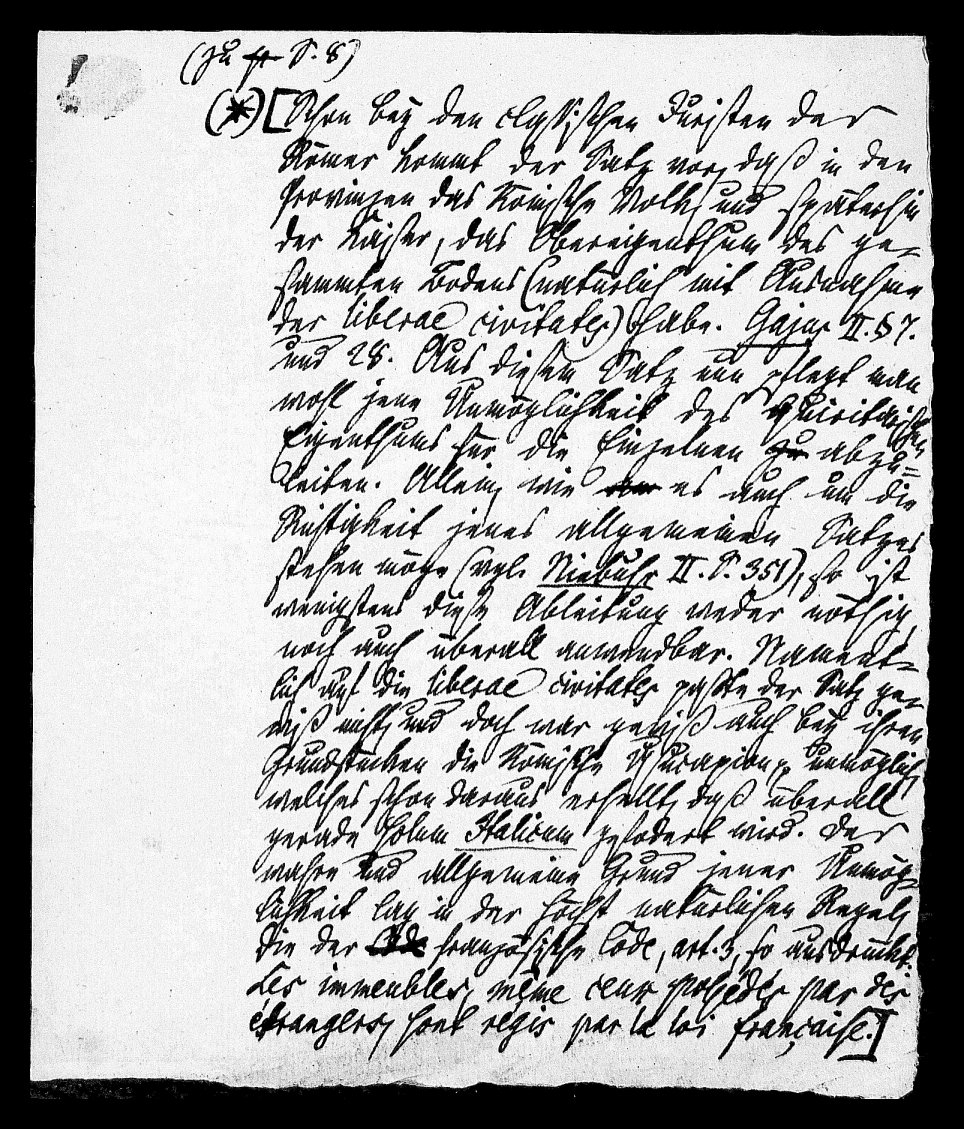 (zu S. 8)
(*) [Schon bey den classischen Juristen der
Römer kommt der Satz vor, daß in den
Provinzen das Römische Volk, und späterhin
der Kaiser, das Obereigenthum des ge-
sammten Bodens (natürlich mit Ausnahme
der liberae civitates) habe. Gajus II. § 7.
und 28. Aus diesem Satz nun pflegt man
wohl jene Unmöglichkeit des quiritarischen
Eigenthums für die Einzelnen abzu=
leiten. Allein, wie es auch um die
Richtigkeit jenes allgemeinen Satzes
stehen möge (vgl. Niebuhr II. S. 351), so ist
wenigstens diese Ableitung weder nöthig,
noch auch überall anwendbar. Nament-
lich auf die liberae civitates paßte der Satz ge-
wiß nicht, und doch war gewiß auch bey ihren
Grundstücken die Römische Usucapion unmöglich,
welches schon daraus erhellt, daß überall
gerade solum Italicum gefodert wird. Der
wahre und allgemeine Grund jener Unmög-
lichkeit lag in der höchst natürlichen Regel,
die der französische Code, art. 3, so ausdrückt:
Les immeubles, même ceux possédés par des
étrangers, sont régis par la loi française.]